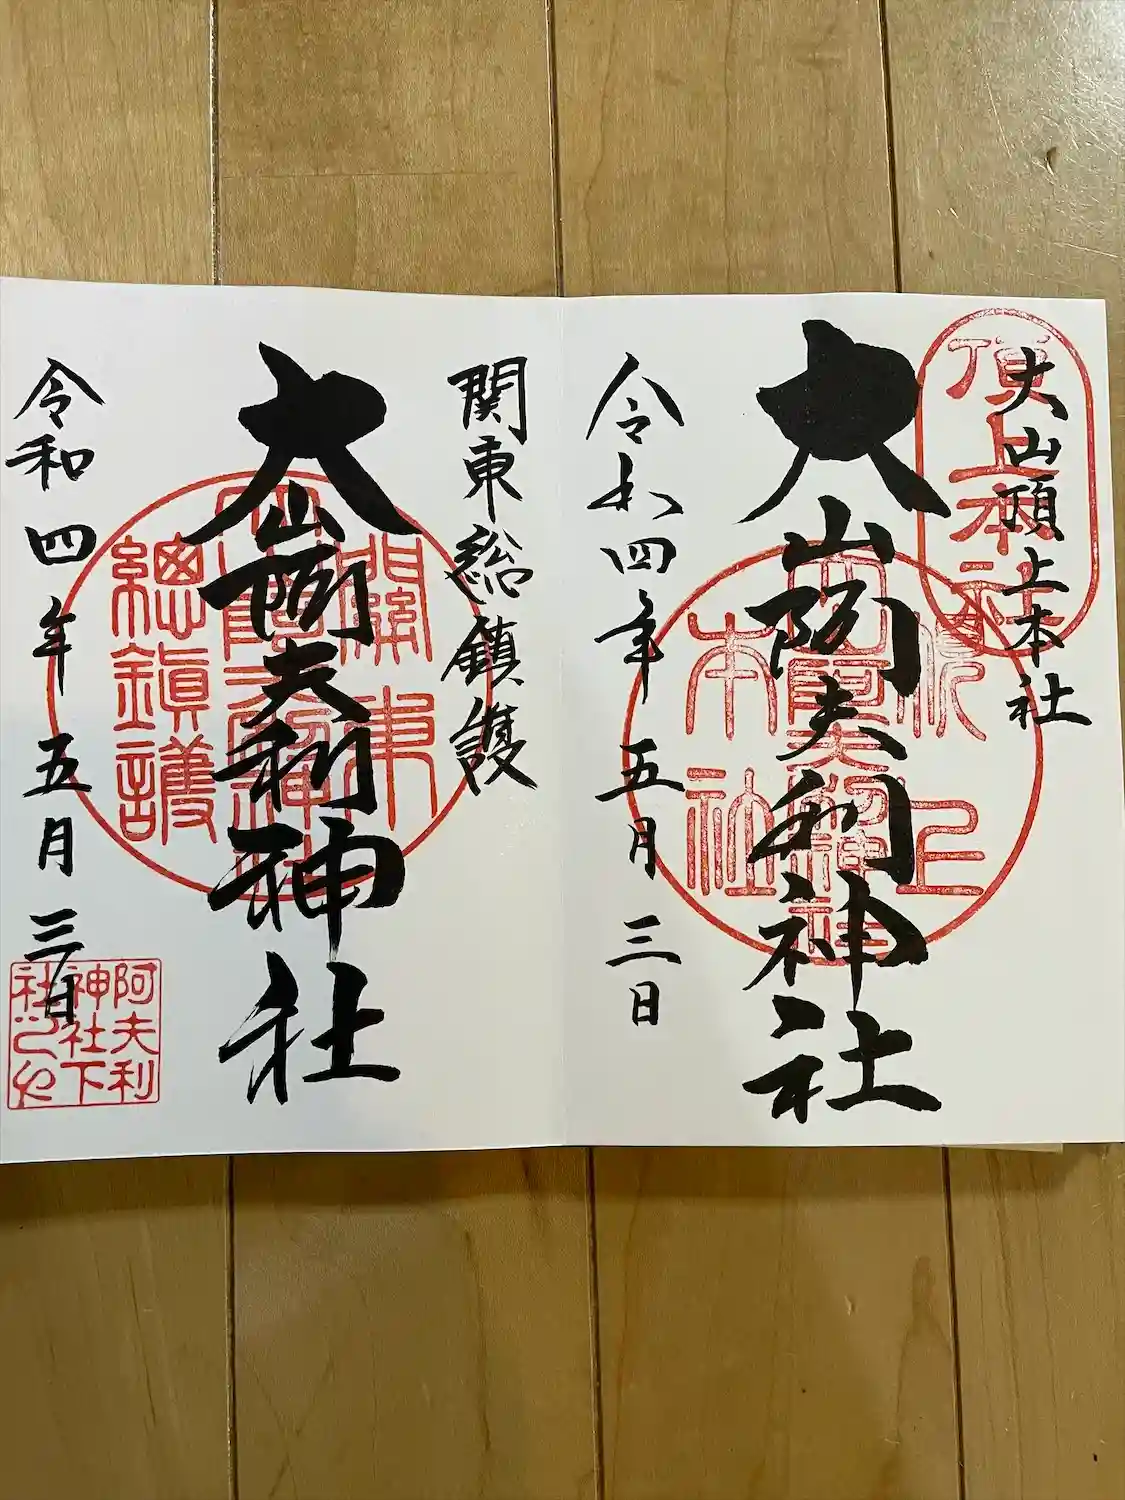 大山頂上本社
頂上本社
大山阿夫利神社
令和四年五月三日
本社
関東総鎮護
關東
總鎮護
大山阿夫利神社
令和四年五月三日
阿夫利
神社下
社